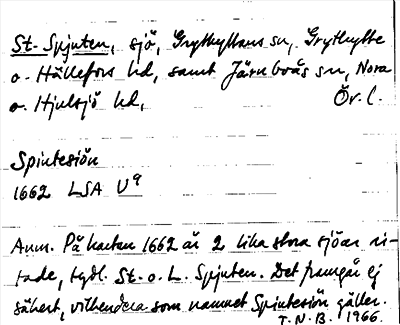 St. Spjuten, sjö, Grythyttans sn, Grythytte
o. Hällefors hd, samt Järnboås sn, Nora
o. Hjulsjö hd, Ör. l.
Spintesiön
1662 LSA U⁹
Anm. På kartan 1662 är 2 lika stora sjöar ri-
tade, tydl. St. o. L. Spjuten. Det framgår ej
säkert, vilkendera som namnet Spintesiön gäller.
T. N. B. 1966.